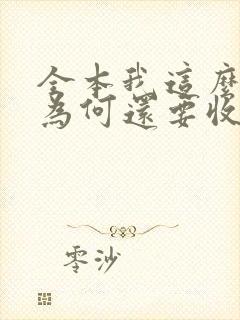 全本我這麼
為何還要收
零沙